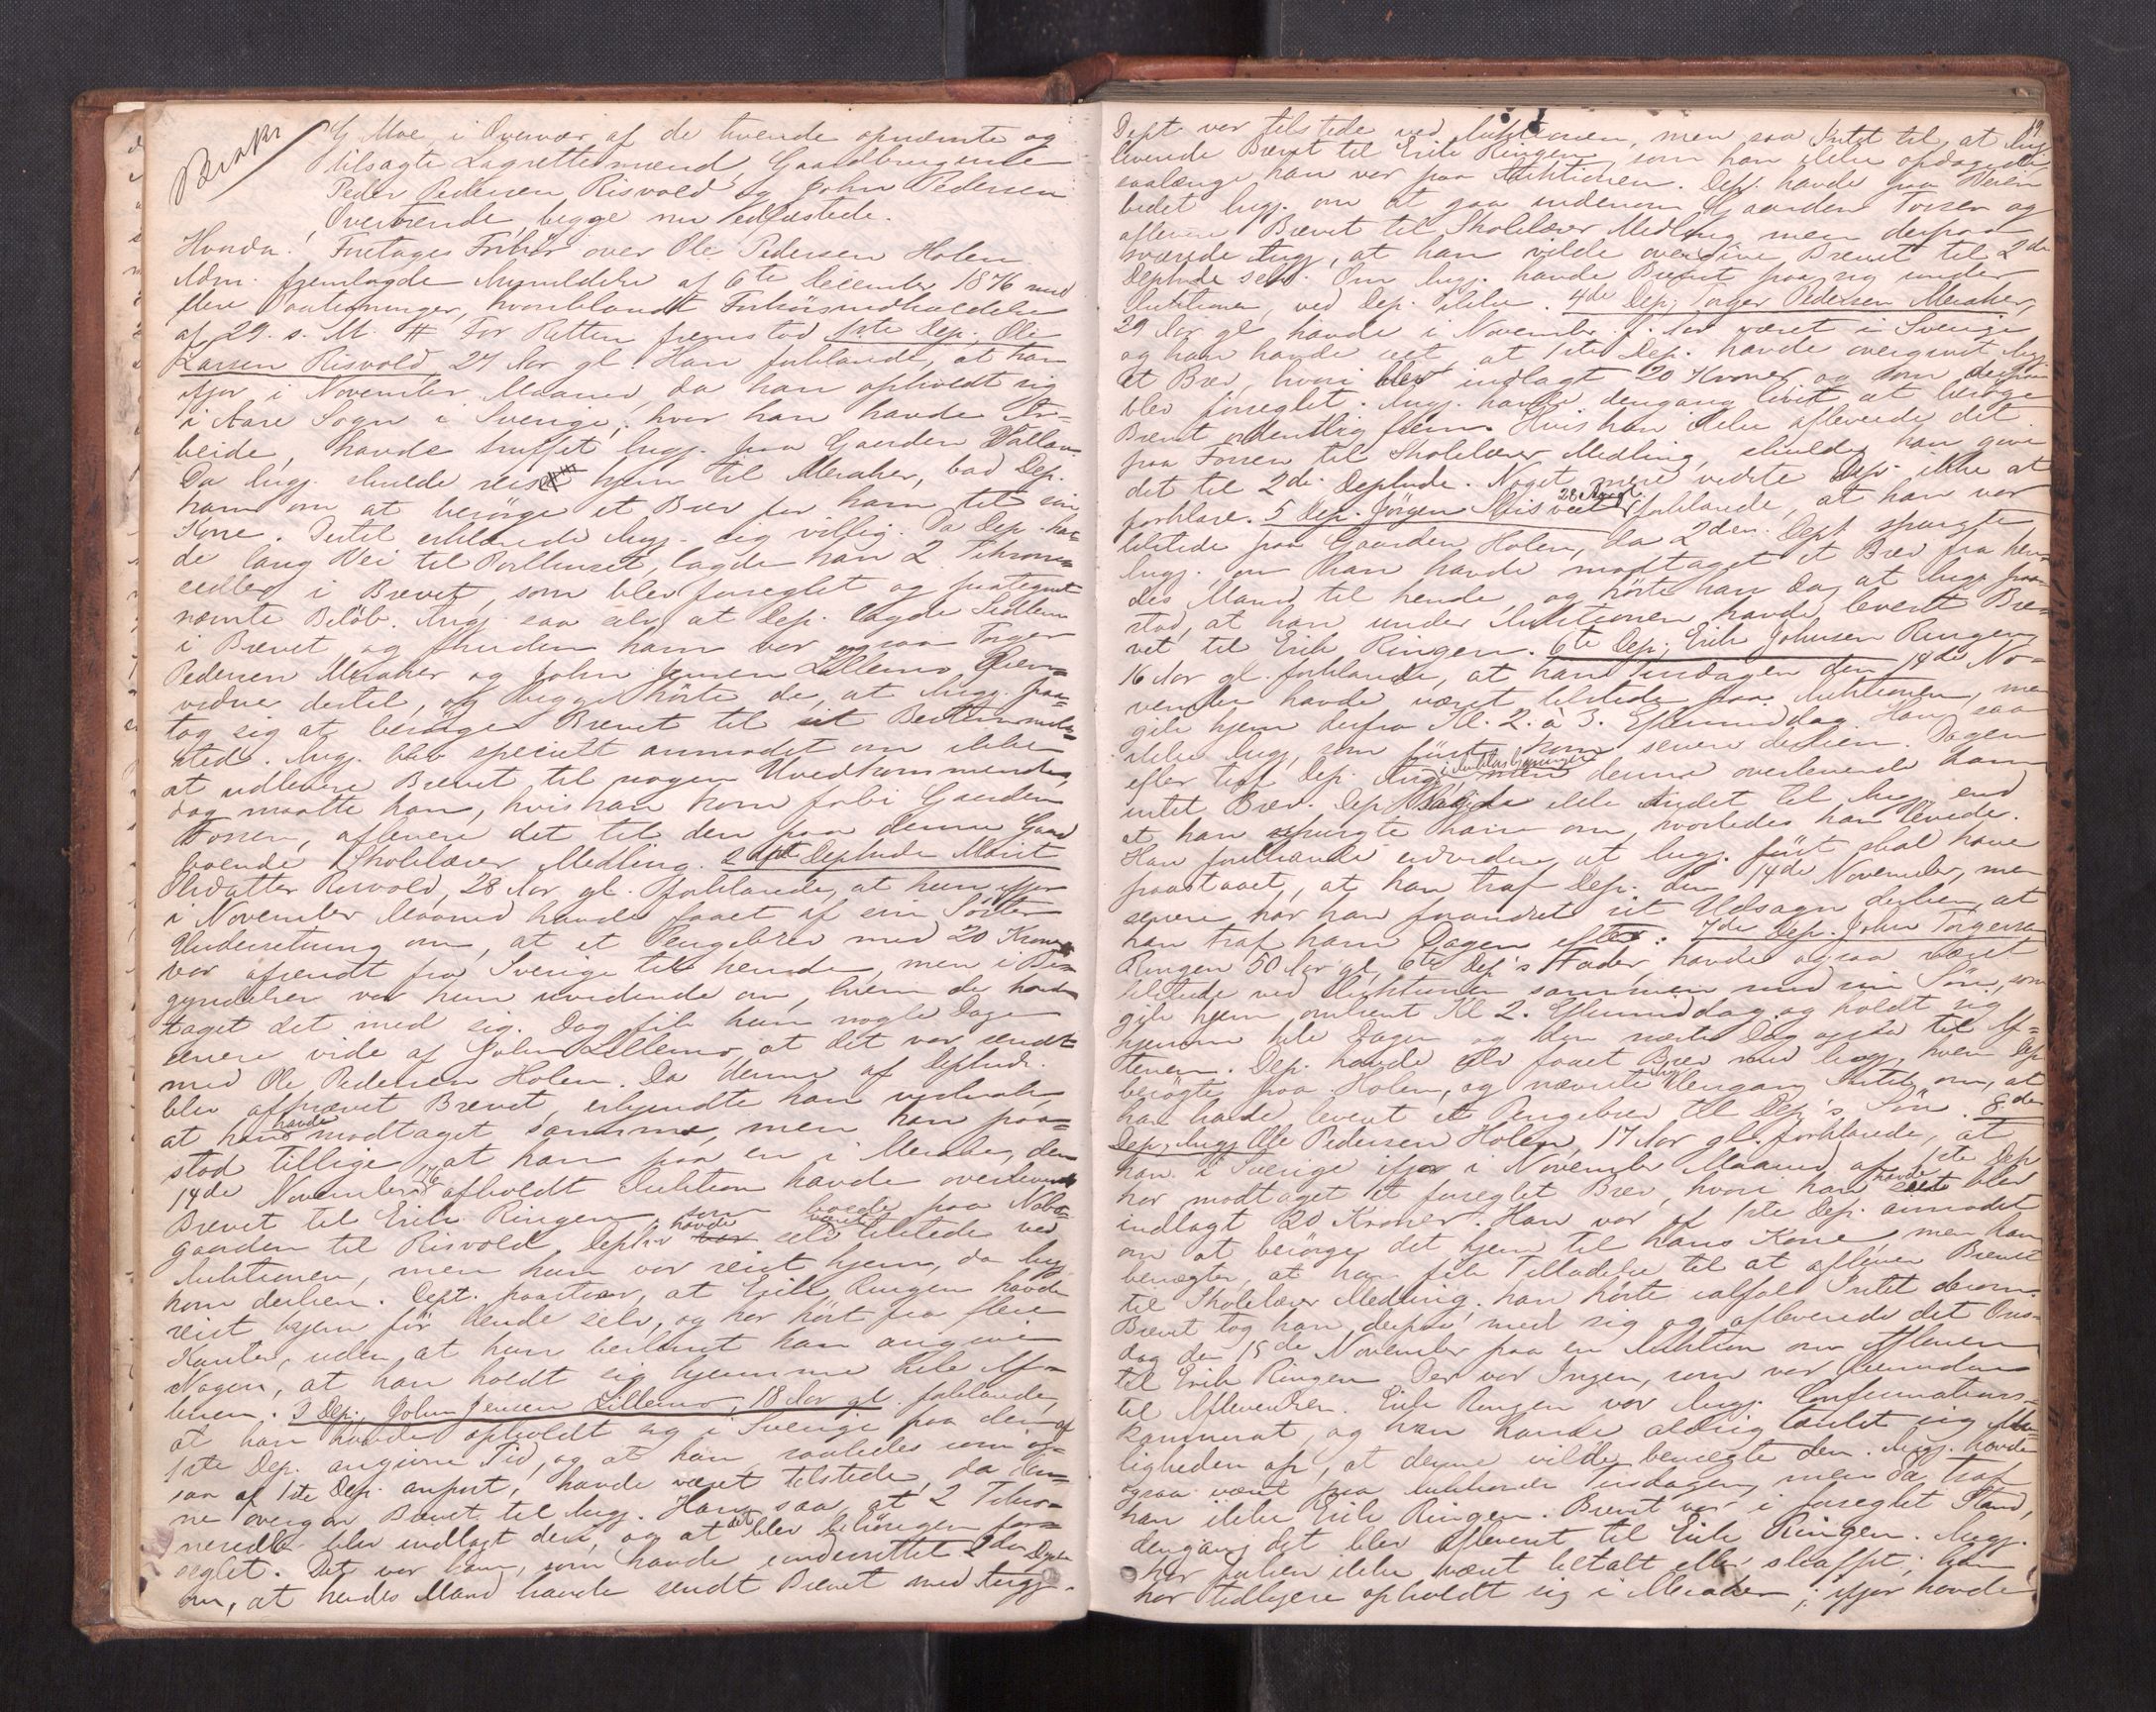 Brækr
G Moe i Overvær af de tvende opnævnte og
tilsagte Lagrettemænd, Gaardbrugerne
Peder Pedersen Risvold og John Pedersen
Overvænde, begge nu edfæstede.
Hvorda: Foretages Forhör over Ole Pedersen Holen.
Adm. fremlagde Anmeldelse af 6te December 1876 med
flere Paategninger, hvoriblandt Forhörsudholdelse
af 29. s. M. # For Retten fremstod 1ste Dep. Ole
Larsen Risvold, 27 Aar gl. Han forklarede, at han
ifjor i November Maaned, da han opholdt sig
i Aare Sogn i Sverige, hvor han havde Ar-
beide, havde truffet Angj. paa Gaarden Vallan.
Da Angj. skulde reise hjem til Meraker, bad Dep.
ham om at besörge et Brev for ham til sin
Kone. Dertil erklærede Angj. sig villig. Da Dep. hav-
de lang Vei til Posthuset, lagde han 2 Tikrone-
sedler i Brevet, som blev forseglet og paategnet
nævnte Belöb. Angj. saa selv, at Dep. lagde Sedlerne
i Brevet, og foruden ham var ogsaa Torger
Pedersen Meraker og John Jensen Lillemo Öien-
vidner dertil, og begge hörte de, at Angj. paa-
tog sig at besörge Brevet til sit Bestemmelses-
sted. Angj. blev specielt anmodet om ikke
at udlevere Brevet til nogen Uvedkommende,
dog maatte han, hvis han kom forbi Gaarden
Fossen, aflevere det til den paa denne Gaard
boende Skolelærer Medling. 2det Deptinde Marit
Olsdatter Risvold, 28 Aar gl. forklarede, at hun ifjor
i November Maaned havde faaet af sin Söster
Underretning om, at et Pengebrev med 20 Kroner
var afsendt fra Sverige til hende, men i Be-
gyndelsen var hun uvidende om, hvem der havde
taget det med sig. Dog fik hun nogle Dage
senere vide af John Lillemo, at det var sendt
med Ole Pedersen Holen. Da denne af Deptinde.
blev affrævet Brevet, erkjendte han vistnok
at han havde modtaget samme, men han paa-
stod tillige, at han paa en i Meraker, den
14de November 76 afholdt Auktion havde overleveret
Brevet til Erik Ringen, som boede paa Nabo-
gaarden til Risvold. Deptin havde selv været tilstede ved
Auktionen, men hun var reist hjem, da Angj.
kom derhen. Dept. paastaar, at Erik Ringen havde
reist hjem för hende selv, og har hört fra flere
Kanter, uden at hun bestemt kan angive
Nogen, at han holdt sig hjemme hele Af-
tenen. 3 Dep. John Jensen Lillemo, 18 Aar gl. forklarede,
at han havde opholdt sig i Sverige paa den af
1ste Dep. angivne Tid, og at han saaledes som og-
saa af 1ste Dep. anfört, havde været tilstede, da den-
ne overgav Brevet til Angj. Han saa, at 2 Tikro-
nesedler blev indlagt deri, og at det blev behörigen for-
seglet. Det var ham, som havde underrettet 2den Deptinde
om, at hendes Mand havde sendt Brevet med Angj.
19.
Dept var tilstede ved Auktionen, men saa Intet til, at Angj.
leverede Brevet til Erik Ringen, som han ikke opdagede,
saalænge han var paa Auktionen. Dep. havde paa Veien
bedet Angj. om at gaa indenom Gaarden Fossen og
aflevere Brevet til Skolelærer Medling, men derpaa
svarede Angj., at han vilde overgive Brevet til 2den
Deptinde selv. Om Angj. havde Brevet paa sig under
Auktionen, ved Dep. ikke. 4de Dep. Torger Pedersen Meraker,
29 Aar gl havde i November f. Aar været i Sverige
og han havde seet, at 1ste Dep. havde overgivet Angj.
et Brev, hvori blev indlagt 20 Kroner og som derpaa
blev forseglet. Angj. havde dengang lovet at besörge
Brevet ordentlig frem. Hvis han ikke afleverede det
paa Fossen til Skolelærer Medling, skulde han give
det til 2de Deptinde. Noget mere vidste Dep. ikke at
forklare. 5 Dep. Jörgen 28 Aar gl. forklarede, at han var
tilstede paa Gaarden Holen, da 2den Dept spurgte
Angj. om han havde modtaget et Brev fra hen-
des Mand til hende, og hörte han da, at Angj. paa-
stod, at han under Auktionen havde leveret Bre-
vet til Erik Ringen. 6te Dep. Erik Johnsen Ringen,
16 Aar gl. forklarede, at han Tirsdagen den 14de No-
vember havde været tilstede paa Auktionen, men
gik hjem derfra Kl. 2. a 3. Eftermiddag. Han saa
ikke Angj., som först kom senere derhen. Dagen
efter traf Dep. Angj. men denne overleverede ham
intet Brev. Dep sagde ikke Andet til Angj. end
at han spurgte ham om, hvorledes han levede.
Han forklarede endvidere, at Angj. först skal have
paastaaet, at han traf Dep. den 14de November, men
senere har han forandret sit Udsagn derhen, at
han traf ham Dagen efter. 7de Dep. John Torgersen
Ringen 50 Aar gl, 6te Dep's Fader, havde ogsaa været
tilstede ved Auktionen sammen med sin Sön, som
gik hjem omtrent Kl 2. Eftermiddag og holdt sig
hjemme hele Dagen og den næste Dag ogsaa til Af-
tenen. Dep. havde selv faaet Brev med Angj., hvem Dep.
besögte paa Holen, og nævnte Angj. dengang Intet om, at
han havde leveret et Pengebrev til Dep's Sön. 8de
Dep. Angj. Ole Pedersen Holen, 17 Aar gl. forklarede, at
han i Sverige ifjor i November Maaned af 1ste Dep
har modtaget et forseglet Brev, hvori han havde seet blev
indlagt 20 Kroner. Han var af 1ste Dep. anmodet
om at besörge det hjem til hans Kone, men han
benægter, at han fik Tilladelse til at aflevere Brevet
til Skolelærer Medling. han hörte ialfald Intet derom.
Brevet tog han derpaa med sig og afleverede det Ons-
dag den 15de November paa en Auktion om Aftenen
til Erik Ringen. Der var Ingen, som var
til Afleveringen. Erik Ringen var Angj. Confirmations-
kammerat, og han havde aldrig tænkt sig Mu-
ligheden af, at denne vilde benægte den. Angj. havde
ogsaa været paa Auktionen Tirsdagen, men da traf
han ikke Erik Ringen. Brevet var i forseglet Stand,
dengang det blev afleveret til Erik Ringen. Angj.
har forhen ikke været tiltalt eller straffet; han
har tidligere opholdt sig i Meraker; ifjor havde